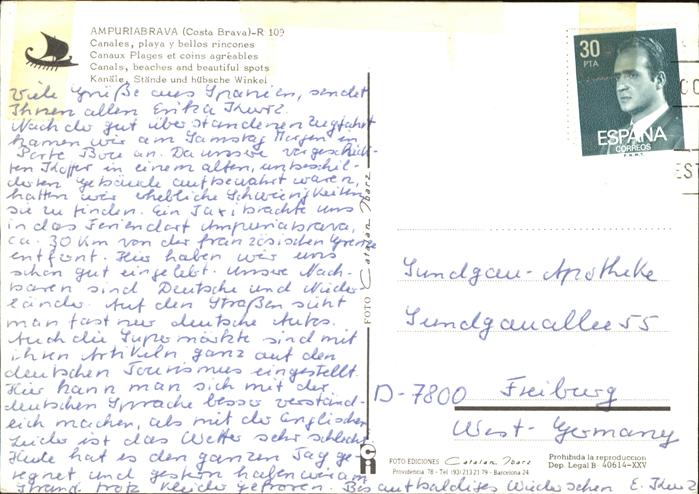 AMPURIABRAVA (Costa Brava)-R 109
Canales, playa y bellos rincones
Canaux Plages et coins agréables
Canals, beaches and beautiful spots
Kanäle, Stände und hübsche Winkel
Viele Grüße aus Spanien, sendet
Ihnen allen Erika Kurz.
Nach der gut überstandenen Zugfahrt
kamen wir am Samstag Morgen in
Porte Bou an. Da unsere vorgeschick-
ten Koffer in einem alten, unbeschil-
derten Gebäude aufbewahrt waren,
hatten wir erhebliche Schwierigkeiten
sie zu finden. Ein Taxi brachte uns
in das Feriendorf Ampuriabrava,
ca. 30 Km von der französischen Grenze
entfernt. Hier haben wir uns
schon gut eingelebt. Unsere Nach-
baren sind Deutsche und Nieder-
länder. Auf den Straßen sieht
man fast nur deutsche Autos.
Auch die Supermärkte sind mit
ihren Artikeln ganz auf den
deutschen Tourismus eingestellt.
Hier kann man sich mit der
deutschen Sprache besser verständ-
lich machen, als mit der englischen
Leider ist das Wetter sehr schlecht
Heute hat es den ganzen Tag ge-
regnet und gestern haben wir am
Strand trotz Kleider gefroren. Bis auf baldiges Wiedersehen E. Kurz
FOTO Catalan Ibarz
30
PTA
ESPAÑA
CORREOS
Sundgau-Apotheke
Sundgauallee 55
D-7800 Freiburg
West-Germany
FOTO EDICIONES Catalan Ibarz
Providencia 78 - Tel (93) 213 21 79 - Barcelona 24
Prohibida la reproduccion
Dep. Legal B- 40614-XXV